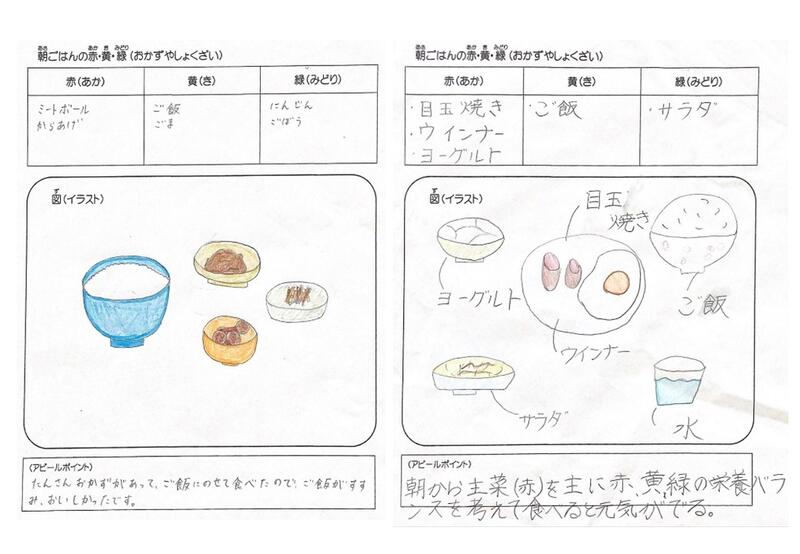 朝ごはんの赤・黄・緑(おかずやしょくざい)
赤(あか) 黄(き) 緑(みどり)
ミートボール ご飯 にんじん
からあげ ごま ごぼう
図(イラスト)
(アピールポイント)
たくさんおかずがあって、ご飯にのせて食べたので、ご飯がすす
み、おいしかったです。
朝ごはんの赤・黄・緑(おかずやしょくざい)
赤(あか) 黄(き) 緑(みどり)
・目玉焼き ・ご飯 ・サラダ
・ウインナー
・ヨーグルト
図(イラスト)
目玉
焼き
ヨーグルト
ご飯
ウインナー
サラダ
水
(アピールポイント)
朝から主菜(赤)を主に赤、黄、緑の栄養バラ
ンスを考えて食べると元気がでる。